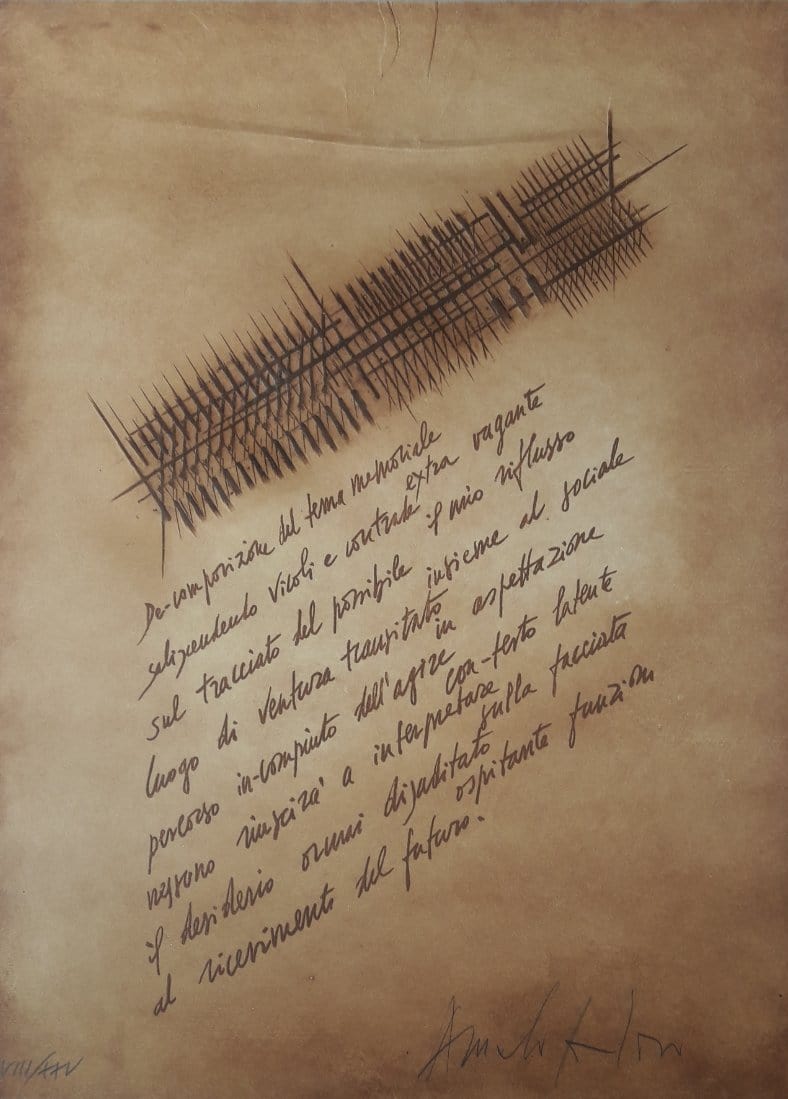 De-composizione del tema memoriale
selciendo vicoli e contrade extra vagante
sul tracciato del possibile il mio riflusso
luogo di ventura transitato insieme al sociale
percorso in-compiuto dell'agire in aspettazione
nessuno riuscirà a interpretare con-testo latente
il desiderio ormai disabitato sulla facciata
al ricevimento del futuro. ospitante funzioni
VIII/XXV